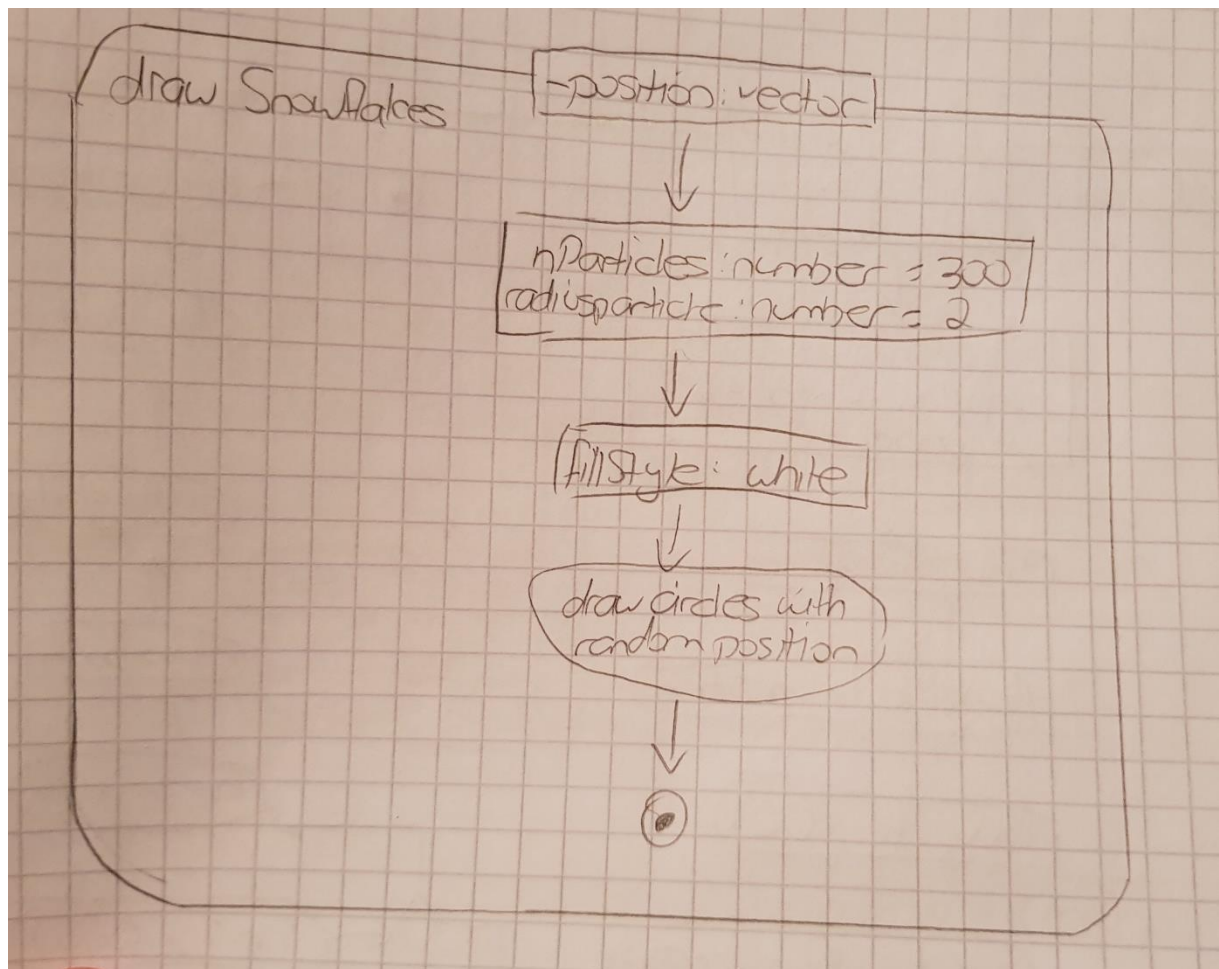 draw Snowflakes
-position: vector
nParticles: number = 300
radiusparticle: number = 2
fillStyle: white
draw circles with
random position